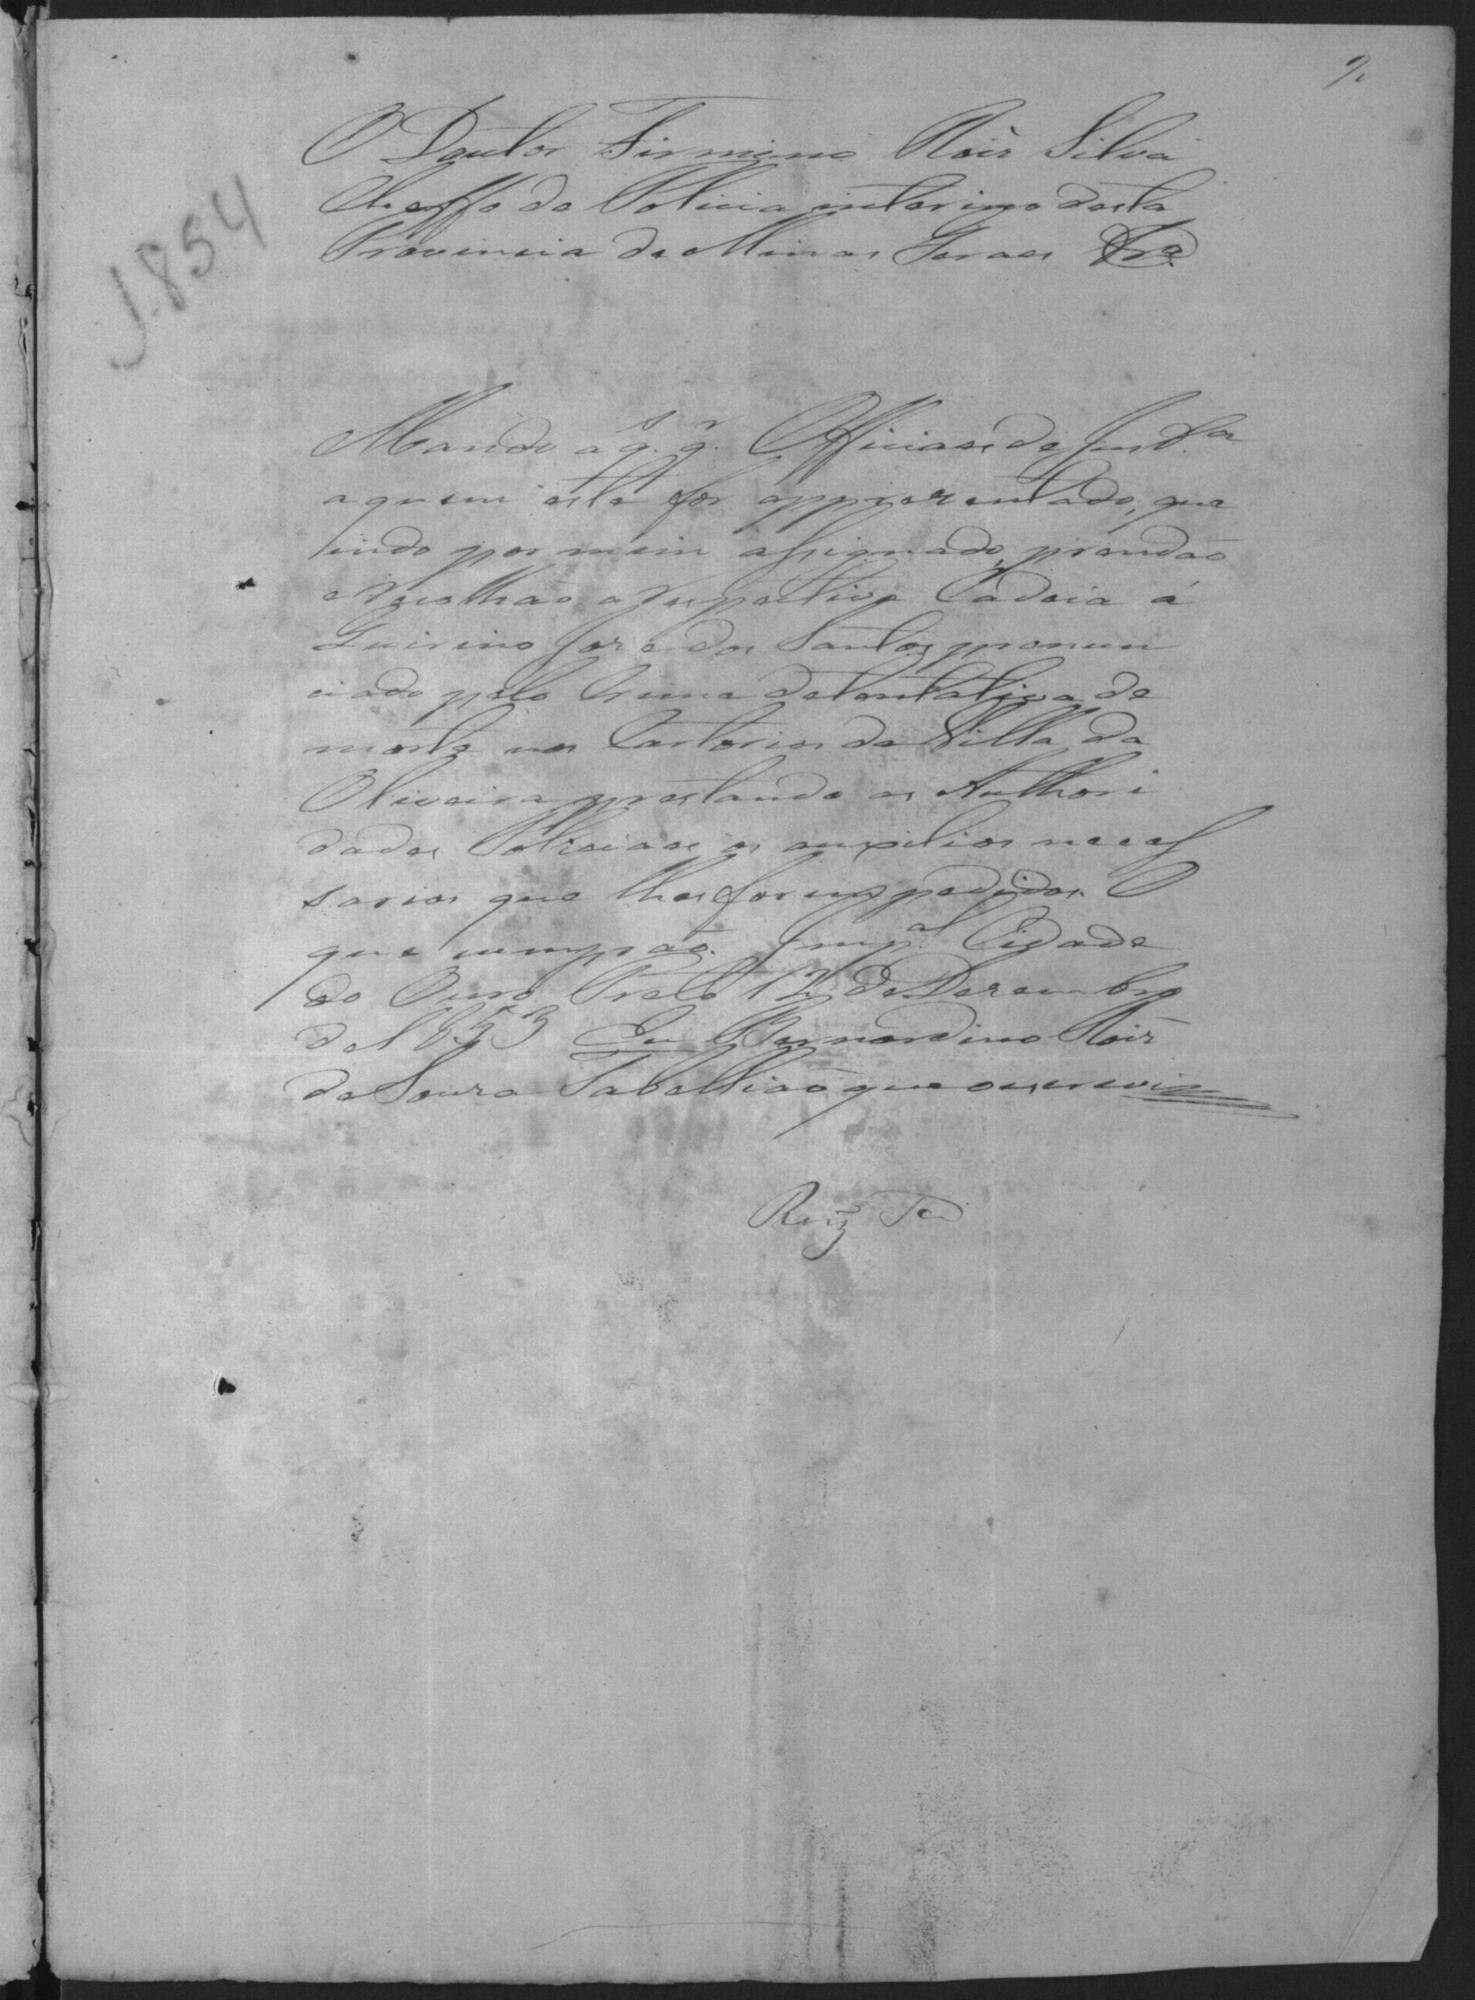 2
O Doutor Firmino Roiz Silva
Cheffe de Policia interino desta
Provincia de Minas Geraes Etc.ª
1.854
Mando a q. q.r Officiaes de Just.ça
a quem este for apprezentado, que
indo por mim assignado, prendão
e recolhão a respectiva Cadeia á
Quirino Joze dos Santos, pronun
ciado pelo crime de tentativa de
morte nos Cartorios da Villa da
Oliveira, prestando as Authori
dades Policiaes os auxilios neces
sarios que lhes forem pedidos. O
que cumprão. Imp.al Cidade
do Ouro Preto 12 de Dezembro
de 1853 Eu Bernardino Roiz
de Souza Tabellião que o escrevi